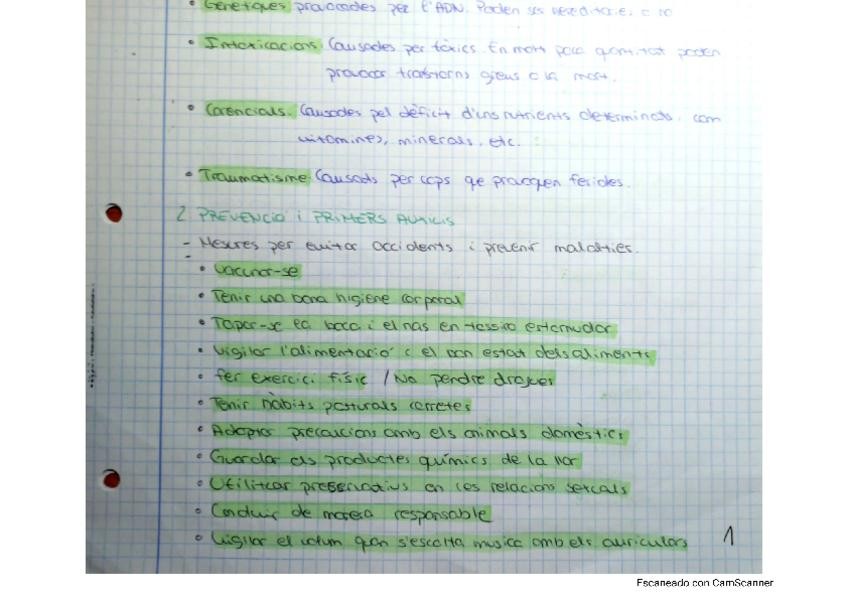 • Genètiques provocades per l'ADN. Poden ser hereditàries o no
• Intoxicacions. Causades per tòxics. En molt poca quantitat poden
provocar trastorns greus o la mort.
• Carencials. Causades pel dèficit d'uns nutrients determinats. com
vitamines, minerals, etc.
• Traumatisme. Causats per cops que provoquen ferides.
2. PREVENCIÓ i PRIMERS AUXILIS
- Mesures per evitar accidents i prevenir malalties.
• Vacunar-se
• Tenir una bona higiene corporal
• Tapar-se la boca i el nas en tossir o esternudar
• Vigilar l'alimentació i el bon estat dels aliments
• fer exercici físic / No pendre drogues
• Tenir hàbits posturals correctes
• Adoptar precaucions amb els animals domèstics
• Guardar els productes químics de la llar
• Utilitzar preservatius en les relacions sexuals
• Conduir de manera responsable
• Vigilar el volum quan s'escolta musica amb els auriculars
1
Escaneado con CamScanner